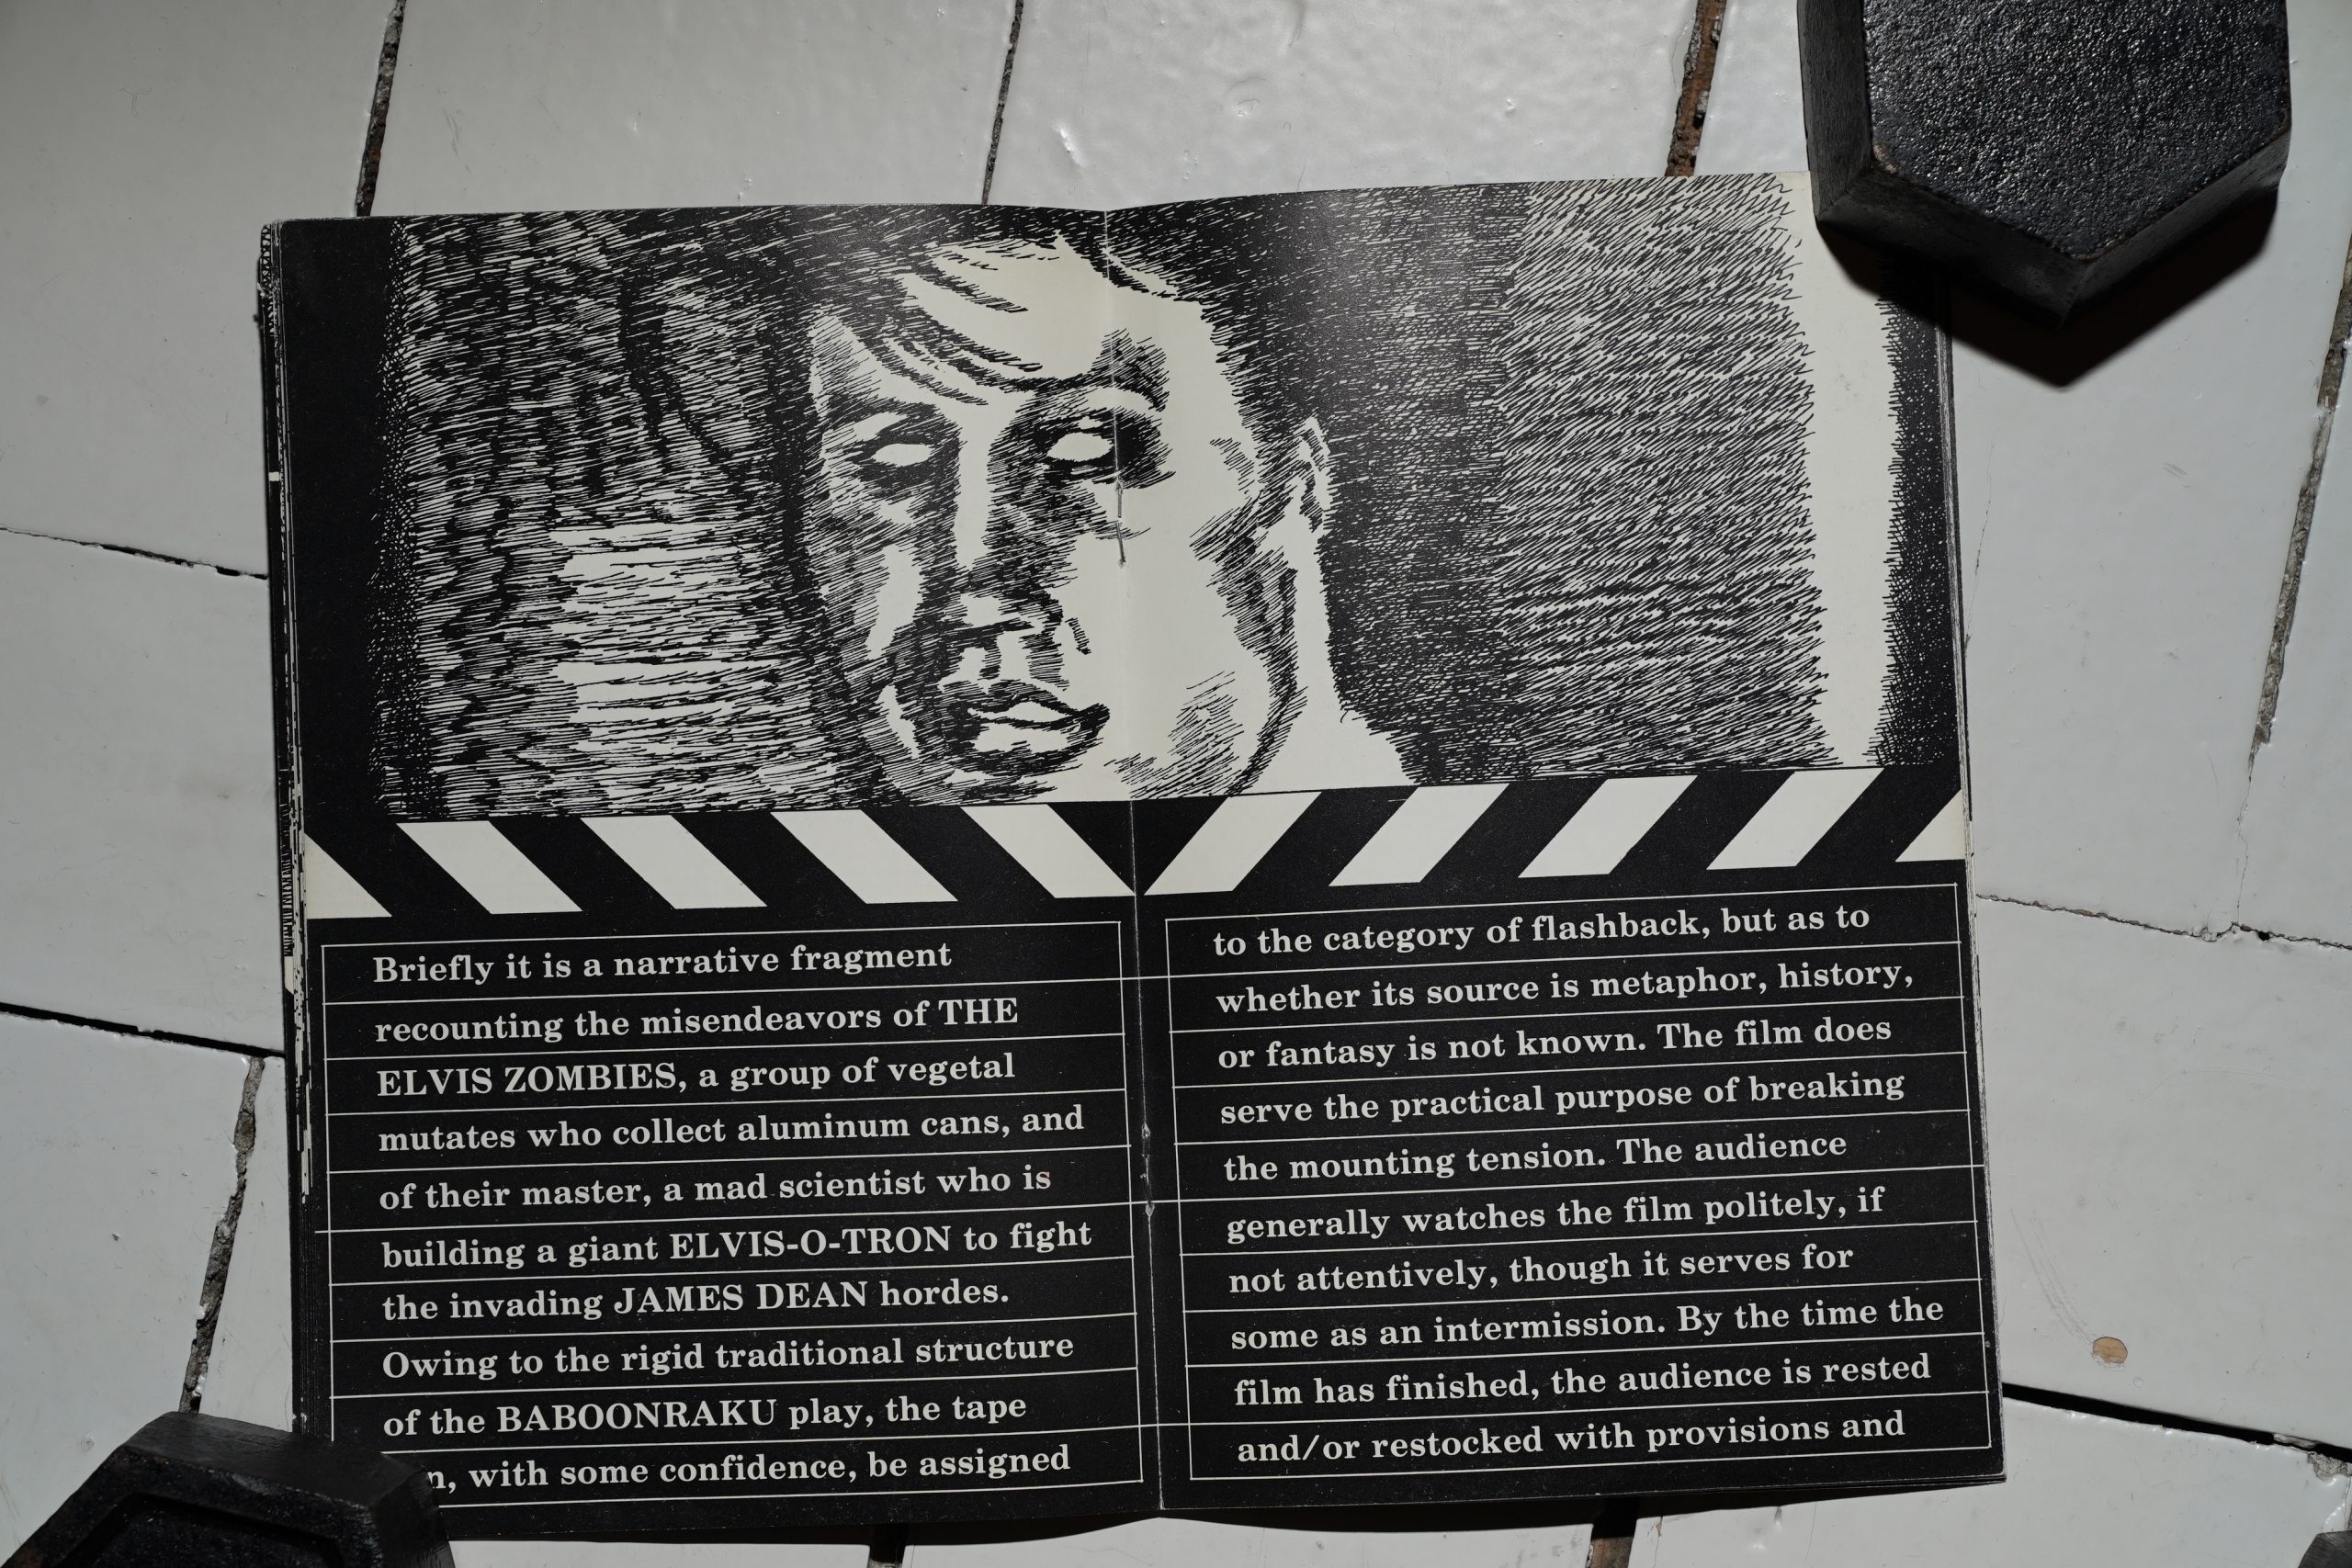 Briefly it is a narrative fragment
recounting the misendeavors of THE
ELVIS ZOMBIES, a group of vegetal
mutates who collect aluminum cans, and
of their master, a mad scientist who is
building a giant ELVIS-O-TRON to fight
the invading JAMES DEAN hordes.
Owing to the rigid traditional structure
of the BABOONRAKU play, the tape
with some confidence, be assigned
to the category of flashback, but as to
whether its source is metaphor, history,
or fantasy is not known. The film does
serve the practical purpose of breaking
the mounting tension. The audience
generally watches the film politely, if
not attentively, though it serves for
some as an intermission. By the time the
film has finished, the audience is rested
and/or restocked with provisions and